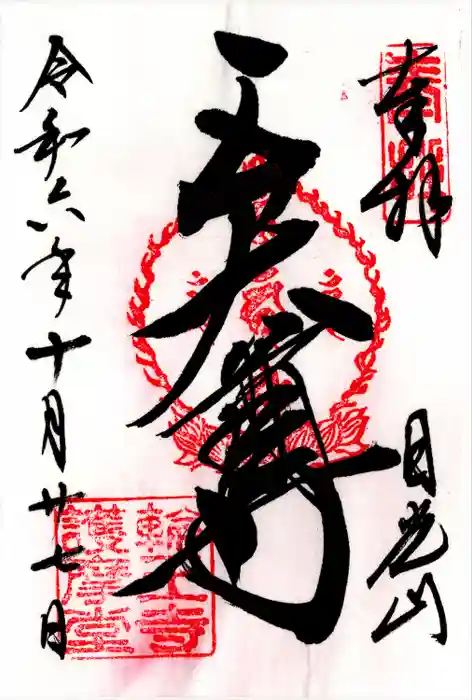 奉拝
日光山
五大尊
令和六年十月廿七日
輪王寺
護摩堂